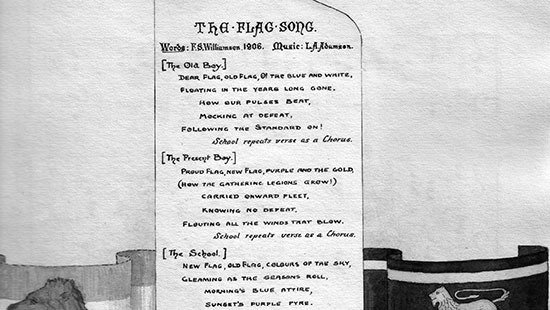 THE·FLAG·SONG.
Words: F.S. Williamson. 1906. Music: L.A. Adamson.
[The Old Boy.]
DEAR FLAG, OLD FLAG, OF THE BLUE AND WHITE,
FLOATING IN THE YEARS LONG GONE,
HOW OUR PULSES BEAT,
MOCKING AT DEFEAT,
FOLLOWING THE STANDARD ON!
School repeats verse as a Chorus.
[The Present Boy.]
PROUD FLAG, NEW FLAG, PURPLE AND THE GOLD,
(HOW THE GATHERING LEGIONS GROW!)
CARRIED ONWARD FLEET,
KNOWING NO DEFEAT,
FLOUTING ALL THE WINDS THAT BLOW.
School repeats verse as a Chorus.
[The School.]
NEW FLAG, OLD FLAG, COLOURS OF THE SKY,
GLEAMING AS THE SEASONS ROLL,
MORNING'S BLUE ATTIRE,
SUNSET'S PURPLE PYRE,